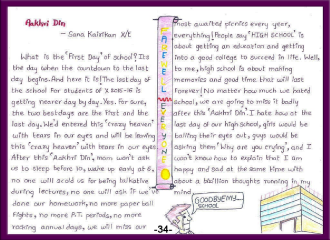 Aakhri Din
- Sana Kalsikan X/E
What is the "First Day" of school? Its
the day when the countdown to the last
day begins. And here it is! The last day of
the school for students of X 2015-16 is
getting nearer day by day. Yes, for sure,
the two best days are the first and the
last day. We'd entered this 'crazy heaven'
with tears in our eyes and will be leaving
this 'crazy heaven' with tears in our eyes.
After this "Aakhri Din", mom won't ask
us to sleep before 10, wake up early at 6,
no one will scold us for being talkative
during lectures, no one will ask if we
done our homework, no more paper ball
fights, no more P.T. periods, no more
annual days, we will miss our
FAREWELL EVERYONE
most awaited picnics every year,
everything! People say 'HIGH SCHOOL' is
about getting an education and getting
into a good college to succeed in life. Well,
to me, high school is about making
memories and good time that will last
forever! No matter how much we hated
school, we are going to miss it badly
after this "Aakhri Din". I hate how at the
last day of our high school, girls would be
bailing their eyes out, guys would be
asking them 'Why are you crying', and I
won't know how to explain that I am
happy and sad at the same time with
about a billion thoughts running in my
mind.
GOODBYE MY
SCHOOL
-34-